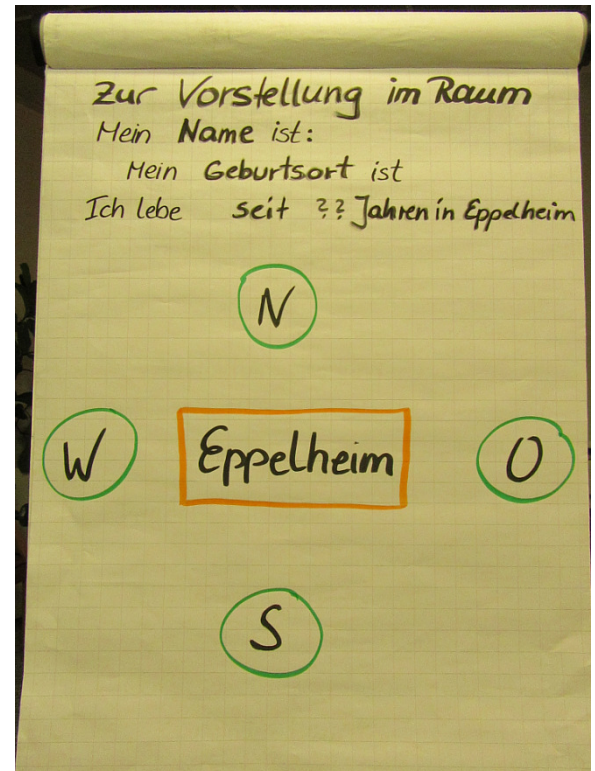 Zur Vorstellung im Raum
Mein Name ist:
Mein Geburtsort ist
Ich lebe seit ?? Jahren in Eppelheim
N
W Eppelheim O
S